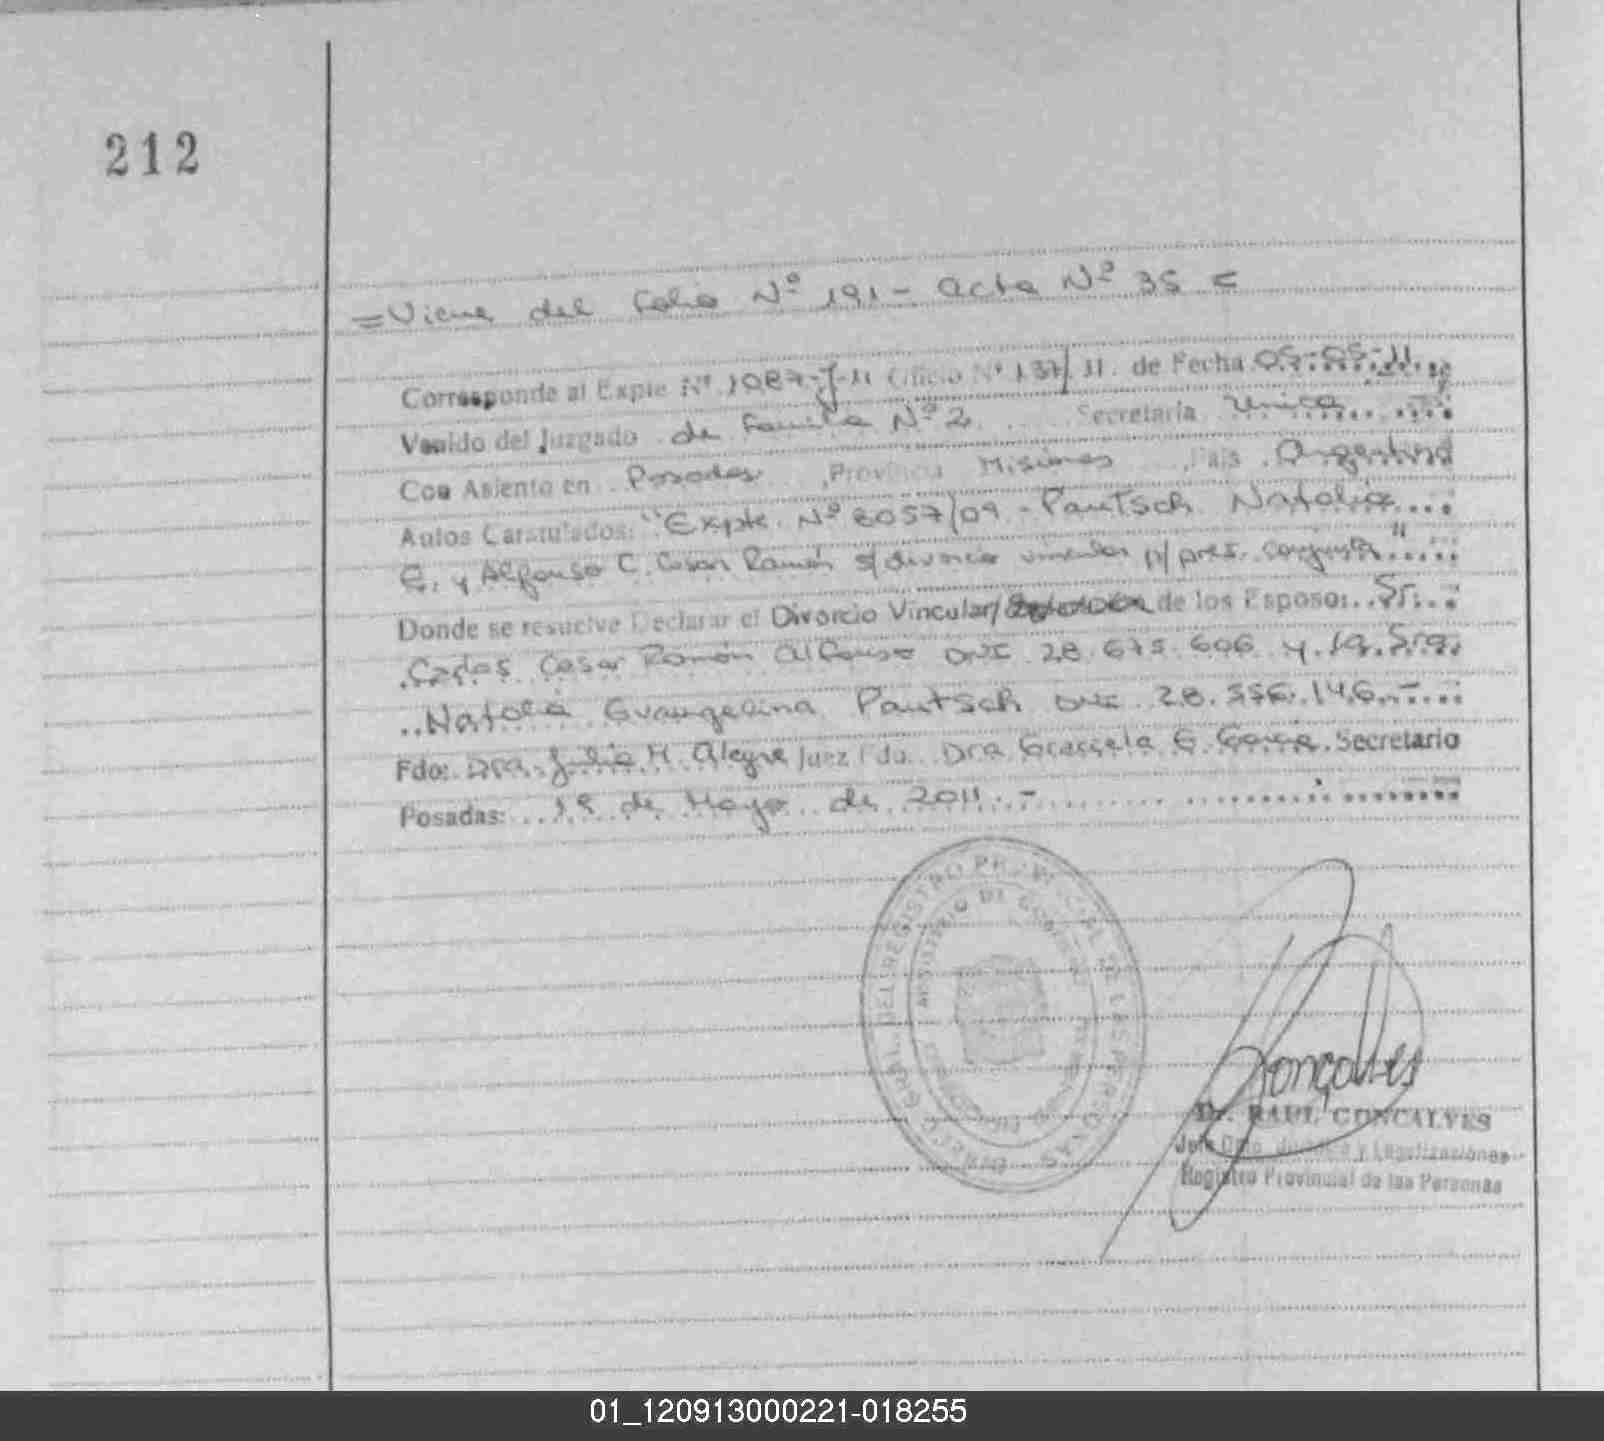 212
= Viene del Folio Nº 191 - Acta Nº 35 =
Corresponde al Expte Nº 1087-J-11 Oficio Nº 137/11. de Fecha 05-05-11
Venido del Juzgado de Familia Nº 2 Secretaría Unica
Con Asiento en Posadas Provincia Misiones País Argentina
Autos Caratulados: "Expte. Nº 8057/09 - Pautsch Natalia
E. y Alfonso C. Cesar Ramón s/divorcio vincular p/ pres. conjunta"
Donde se resuelve Declarar el Divorcio Vincular/ de los Esposos: Sr.
Carlos Cesar Ramón Alfonso DNI 28.675.606 y la Sra.
Natalia Evangelina Pautsch DNI 28.556.146.-
Fdo: Dra. Julia H. Alegre Juez Fdo. Dra. Graciela E. Secretario
Posadas: 19 de Mayo de 2011.-
DIREC. GRAL. DEL REGISTRO PROVINCIAL DE LAS PERSONAS
MINISTERIO DE GOBIERNO
Gonçalves
Dr. RAUL GONCALVES
Jefe Dpto. y Legalizaciones
Registro Provincial de las Personas
01_120913000221-018255